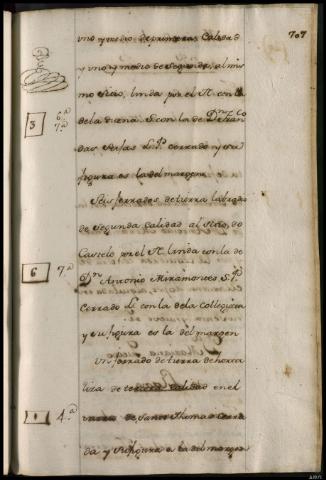 707
uno y medio de primera Calidad
y uno y medio de Segunda, al mis
mo Sitio, linda por el N. con la
3 6.ª 7.ª de la viana S. con la de D.n Fran.co
L. y P. cerrado y su
figura es la del margen
Seis ferrados de tierra labradío
de Segunda Calidad al Sitio, do
Castelo por el N. linda con la de
6 7.ª D.n Antonio Miramontes S. y P.
Cerrado L. con la de la Collegiata
y su figura es la del margen
Un ferrado de tierra de horta
liza de tercera Calidad en el
1 4.ª de Santo Thomas Cerra
da y su figura a la del margen